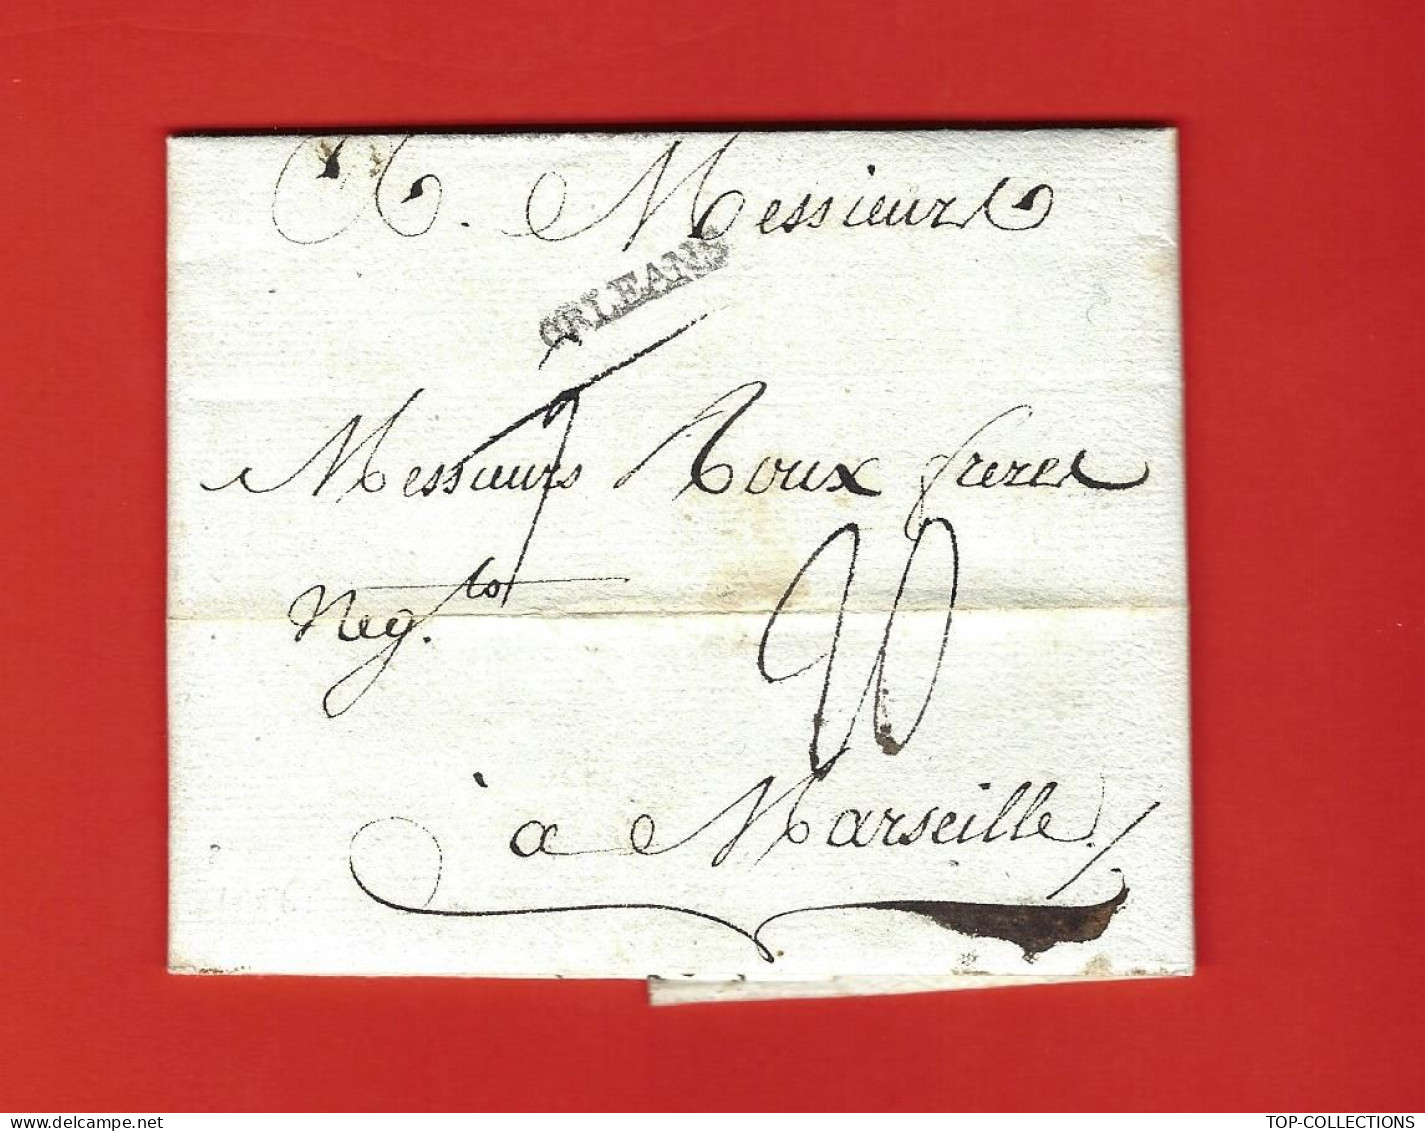 A. Messieurs
ORLEANS
Messieurs Roux freres
Neg.ts
20
à Marseille
delcampe.net
TOP-COLLECTIONS